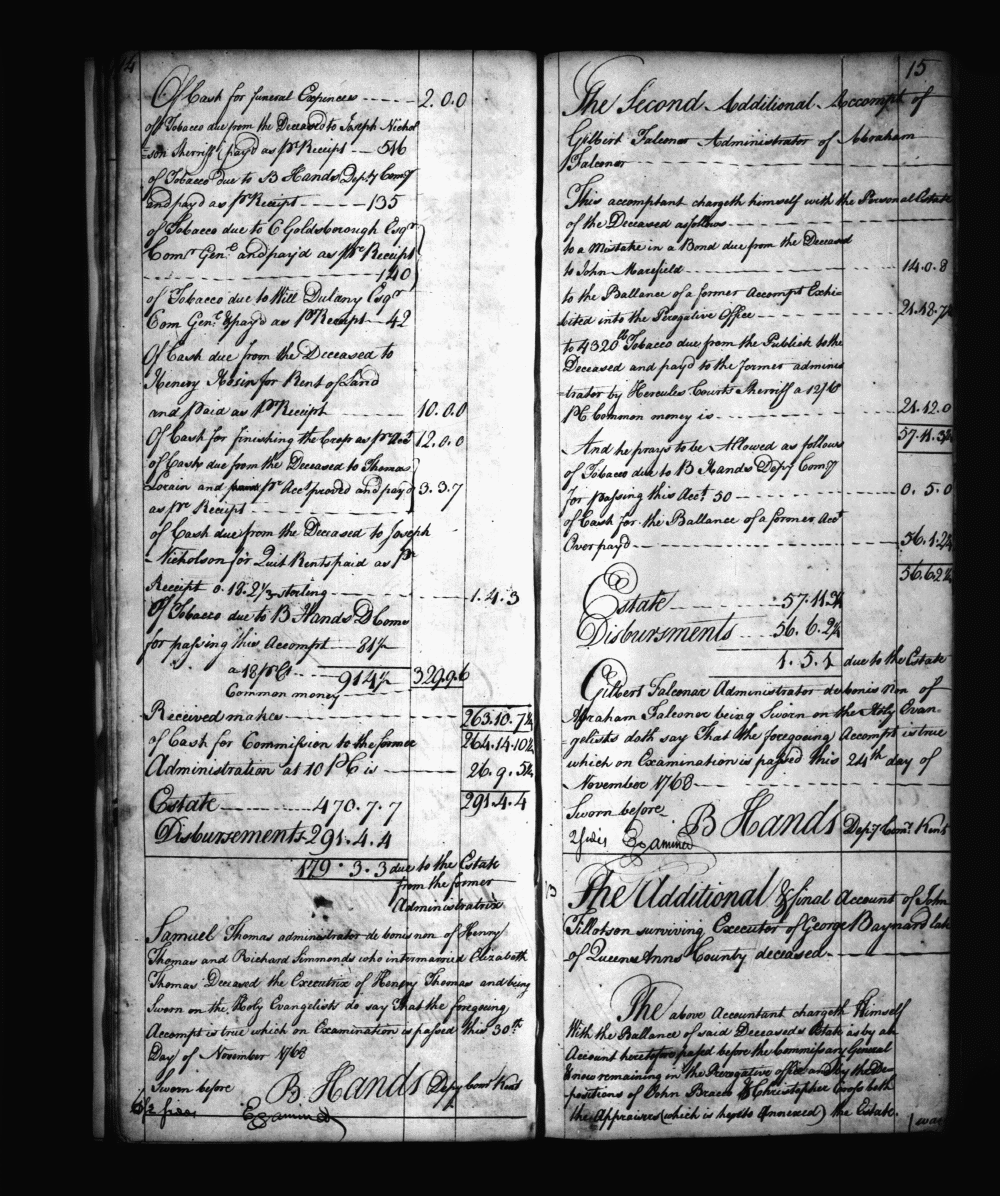 14
Of Cash for funeral Expences 2.0.0
of Tobacco due from the Deceased to Joseph Nichol
=son Sherriff & pay'd as pr Receipt 546
of Tobacco due to B Hands Dep.y Com.y
and pay'd as pr Receipt 135
of Tobacco due to C Goldsborough Esqr
Comr Gen.l and pay'd as pr Receipt
140
of Tobacco due to Will Dulany Esqr
Com Gen.l & pay'd as pr Receipt 42
Of Cash due from the Deceased to
Henery Rosin for Rent of Land
and Paid as Pr Receipt 10.0.0
Of Cash for finishing the Crop as pr Acct 12.0.0
of Cash due from the Deceased to Thomas
Lorain and pr Acct proved and payd 3.3.7
as pr Receipt
of Cash due from the Deceased to Joseph
Nicholson for Quit Rents paid as Pr
Receipt 0.18.2½ sterling 1.4.3
Of Tobacco due to B Hands D Come
for passing this Accompt 81½
a 18 pCt 914½ 32.9.9.6
Common money
Received makes 263.10.7¼
of Cash for Commission to the former 264.14.10½
Administration at 10 PC is 26.9.5¾
Estate 470.7.7 291.4.4
Disbursements 291.4.4
179.3.3 due to the Estate
from the former
Administratrix
Samuel Thomas administrator de bonis non of Henry
Thomas and Richard Simmonds who intermarried Elizabeth
Thomas Deceased the Executrix of Henery Thomas and being
Sworn on the Holy Evangelists do say that the foregoing
Accompt is true which on Examination is passed this 30th
Day of November 1768
Sworn before B. Hands Depy Comr Kent
fides Examined
15
The Second Additional Accompt of
Gilbert Falconar Administrator of Abraham
Falconar
This accomptant chargeth himself with the Personal Estate
of the Deceased as follows
to a Mistake in a Bond due from the Deceased
to John Maxfield 14.0.8
to the Ballance of a former Accompt Exhi-
bited into the Perogative Office 21.18.7½
to 4320 lb Tobacco due from the Publick to the
Deceased and pay'd to the former adminis
=trator by Hercules Courts Sherriff a 12/6
PC Common money is 21.12.0
57.11.3½
And he prays to be Allowed as follows
of Tobacco due to B Hands Depy Com.y
for passing this Acct 50 0.5.0
of Cash for the Ballance of a former Acct
Over payd 56.1.2¼
56.6.2¼
Estate 57.11.3½
Disbursments 56.6.2¼
1.5.1 due to the Estate
Gilbert Falconar Administrator de bonis non of
Abraham Falconer being Sworn on the Holy Evan-
=gelists doth say that the foregoeing Accompt is true
which on Examination is passed this 24th day of
November 1768
Sworn before B Hands Dep.y Comr Kent
2 fides Examined
The Additional & final Account of John
Tillotson surviving Executor of George Baynard late
of Queen Anns County deceased
The above Accountant chargeth Himself
With the Ballance of said Deceaseds Estate as by an
Account heretofore passed before the Commissary General
& now remaining in the Perogative office and by the De
positions of John Bracco & Christopher Cross both
the Appraisers (which is hereto Annexed) the Estate
was